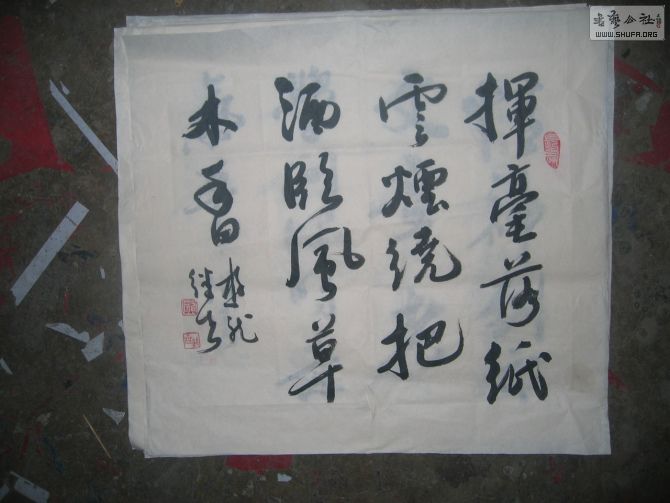 揮毫落紙
雲煙繞把
酒臨風草
木香
書艺公社
WWW.SHUFA.ORG